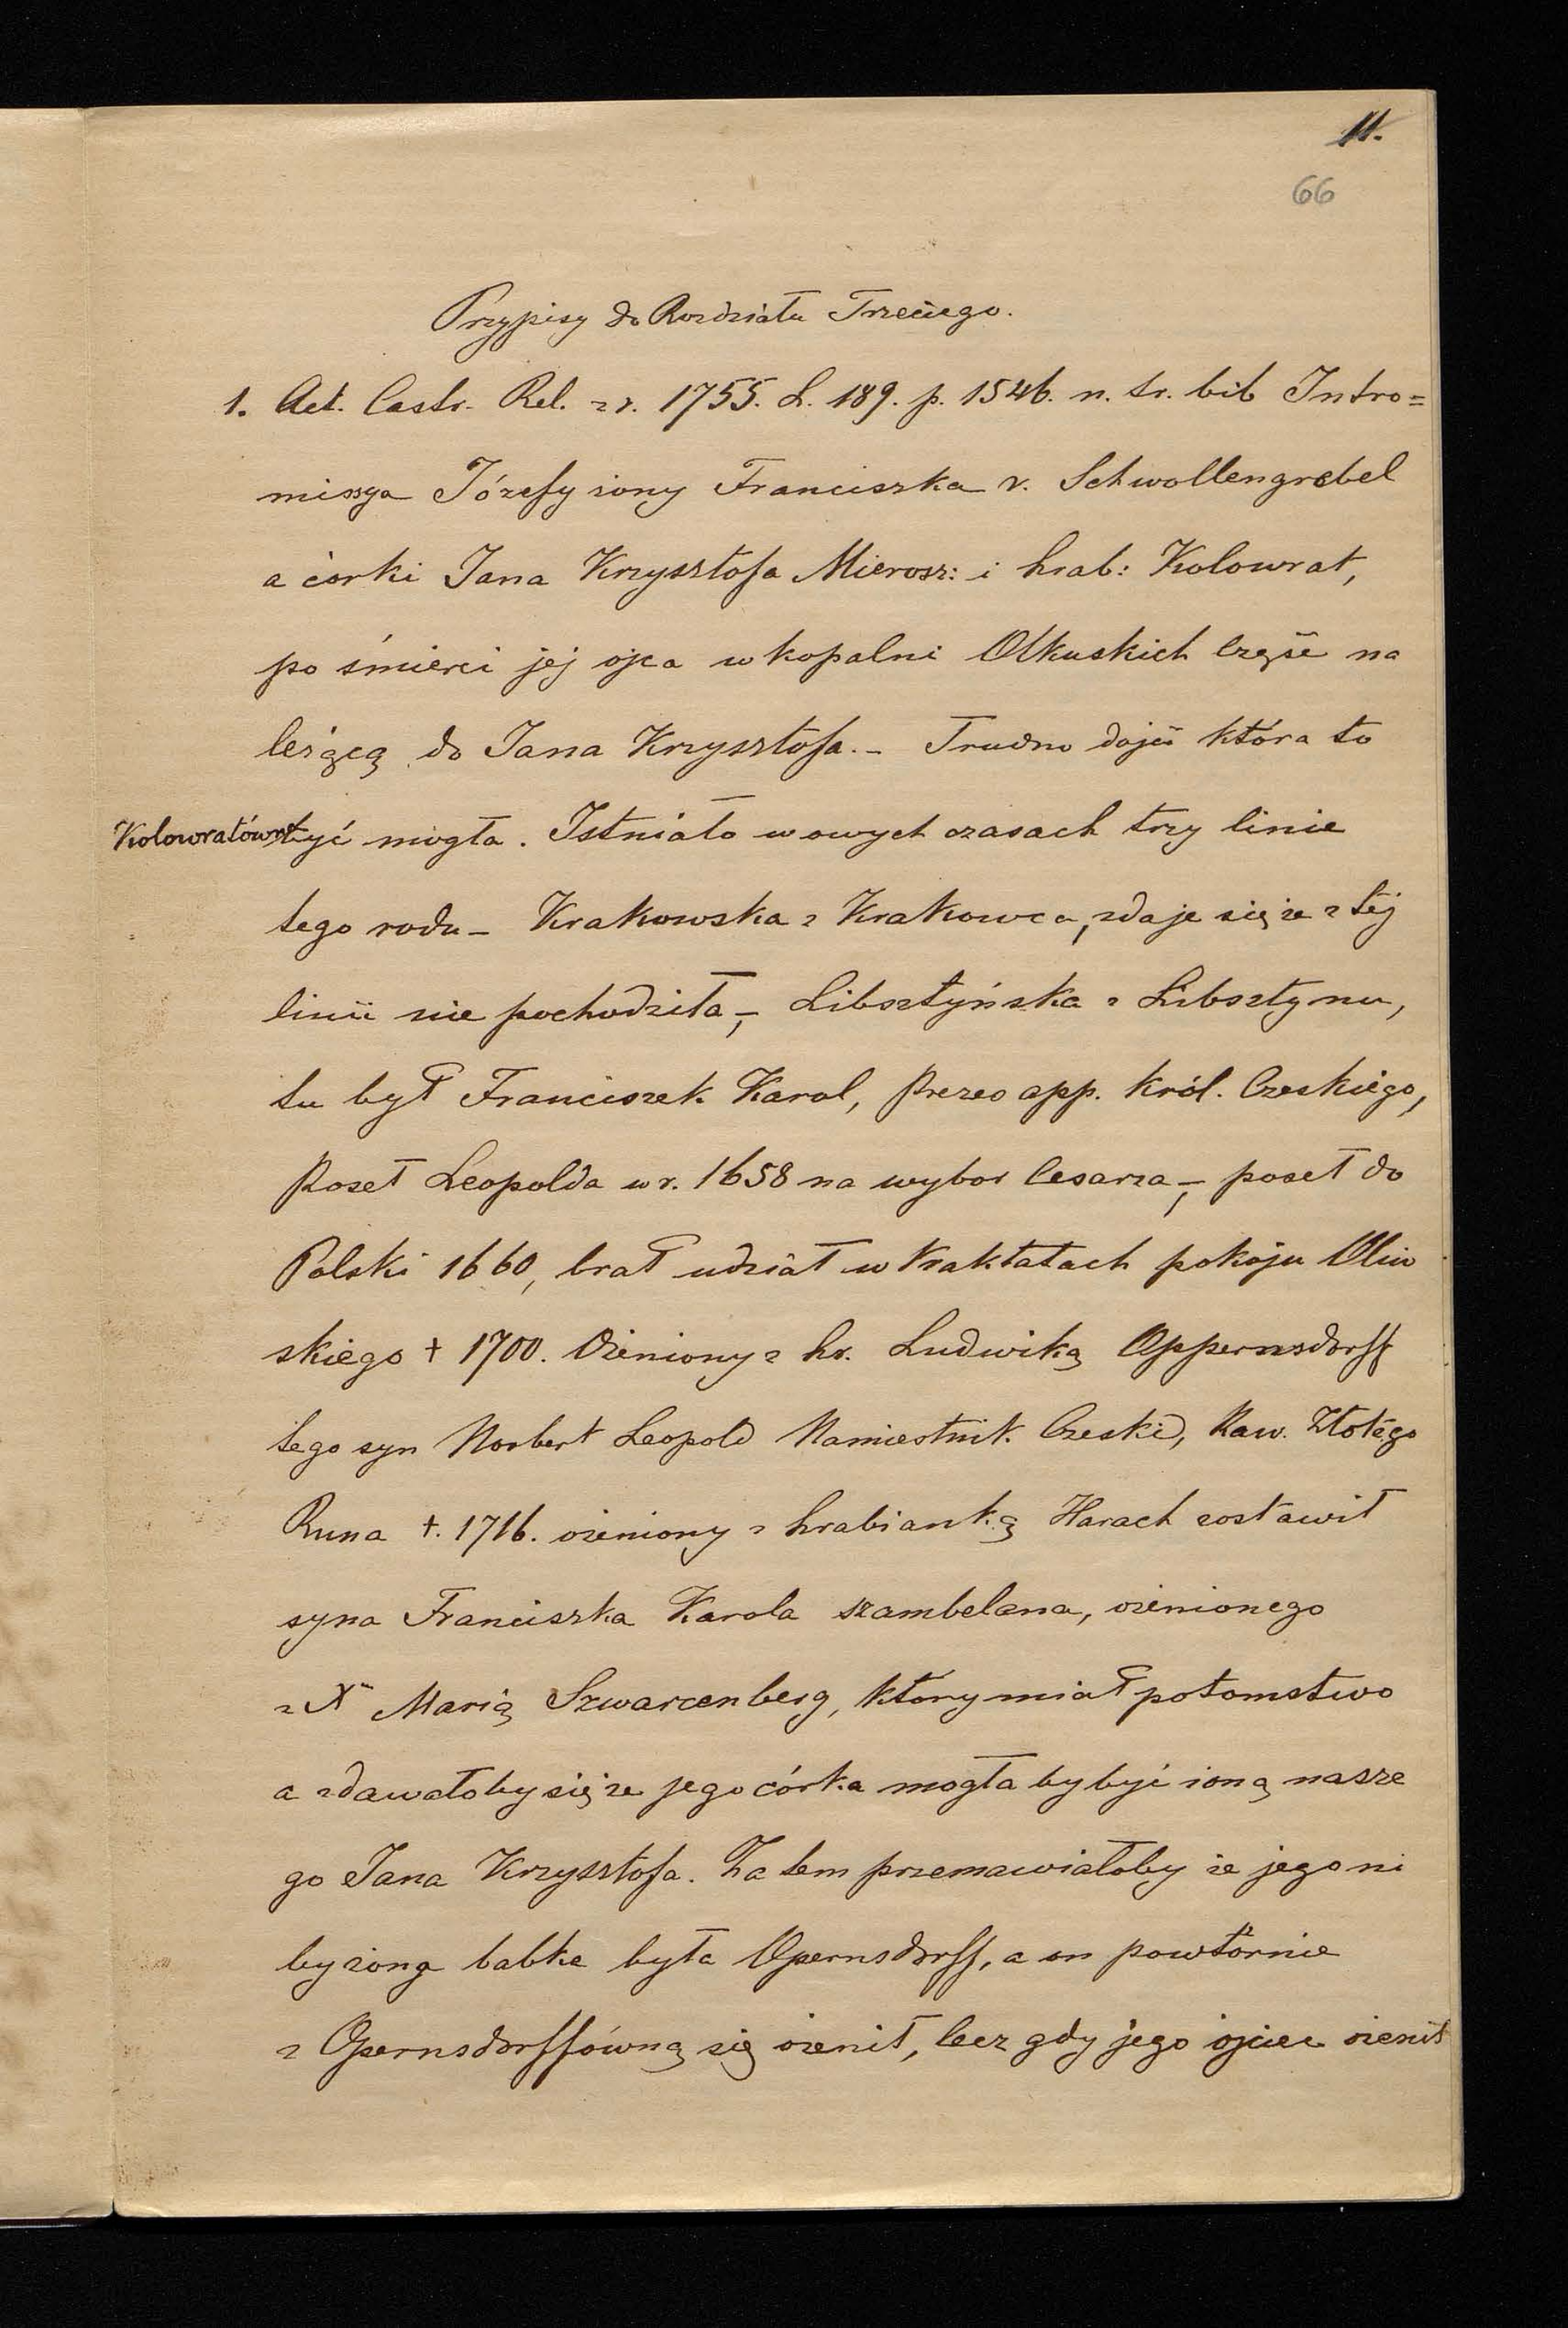 11.
66
Przypisy do Rozdziału Trzeciego.
1. Act. Castr. Rel. z r. 1755. L. 189. p. 1546. n. tr. bib Intro=
missya Józefy żony Franciszka v. Schwollengrebel
a córki Jana Krzysztofa Mierosz: i hrab: Kolowrat,
po śmierci jej ojca w kopalni Olkuskich część na
leżącą do Jana Krzysztofa. – Trudno dojść która to
Kolowratówna być mogła. Istniało w owych czasach trzy linie
tego rodu – Krakowska z Krakowca, zdaje się że z tej
linii nie pochodziła, – Libsztyńska z Libsztynu,
tu był Franciszek Karol, Prezes app. Król. Czeskiego,
Poseł Leopolda w r. 1658 na wybor Cesarza, – poseł do
Polski 1660, brał udział w traktatach pokoju Oliw
skiego + 1700. Ożeniony z hr. Ludwiką Oppernsdorff
tego syn Norbert Leopold Namiestnik Czeski, Kaw. Złotego
Runa +. 1716. ożeniony z hrabianką Harach zostawił
syna Franciszka Karola szambelana, ożenionego
z X Marią Szwarcenberg, który miał potomstwo
a zdawałoby się że jego córka mogła by być żoną nasze
go Jana Krzysztofa. Za tem przemawiałoby że jego ni
by żoną babka była Opernsdorff, a on powtórnie
z Opernsdorffówną się ożenił, lecz gdy jego ojciec ożenił